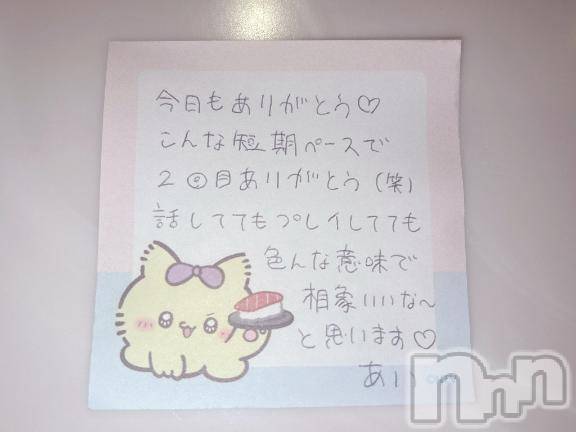 今日もありがとう♡
こんな短期ペースで
2回目ありがとう(笑)
話しててもプレイしてても
色んな意味で
相象いいな〜
と思います♡
あい